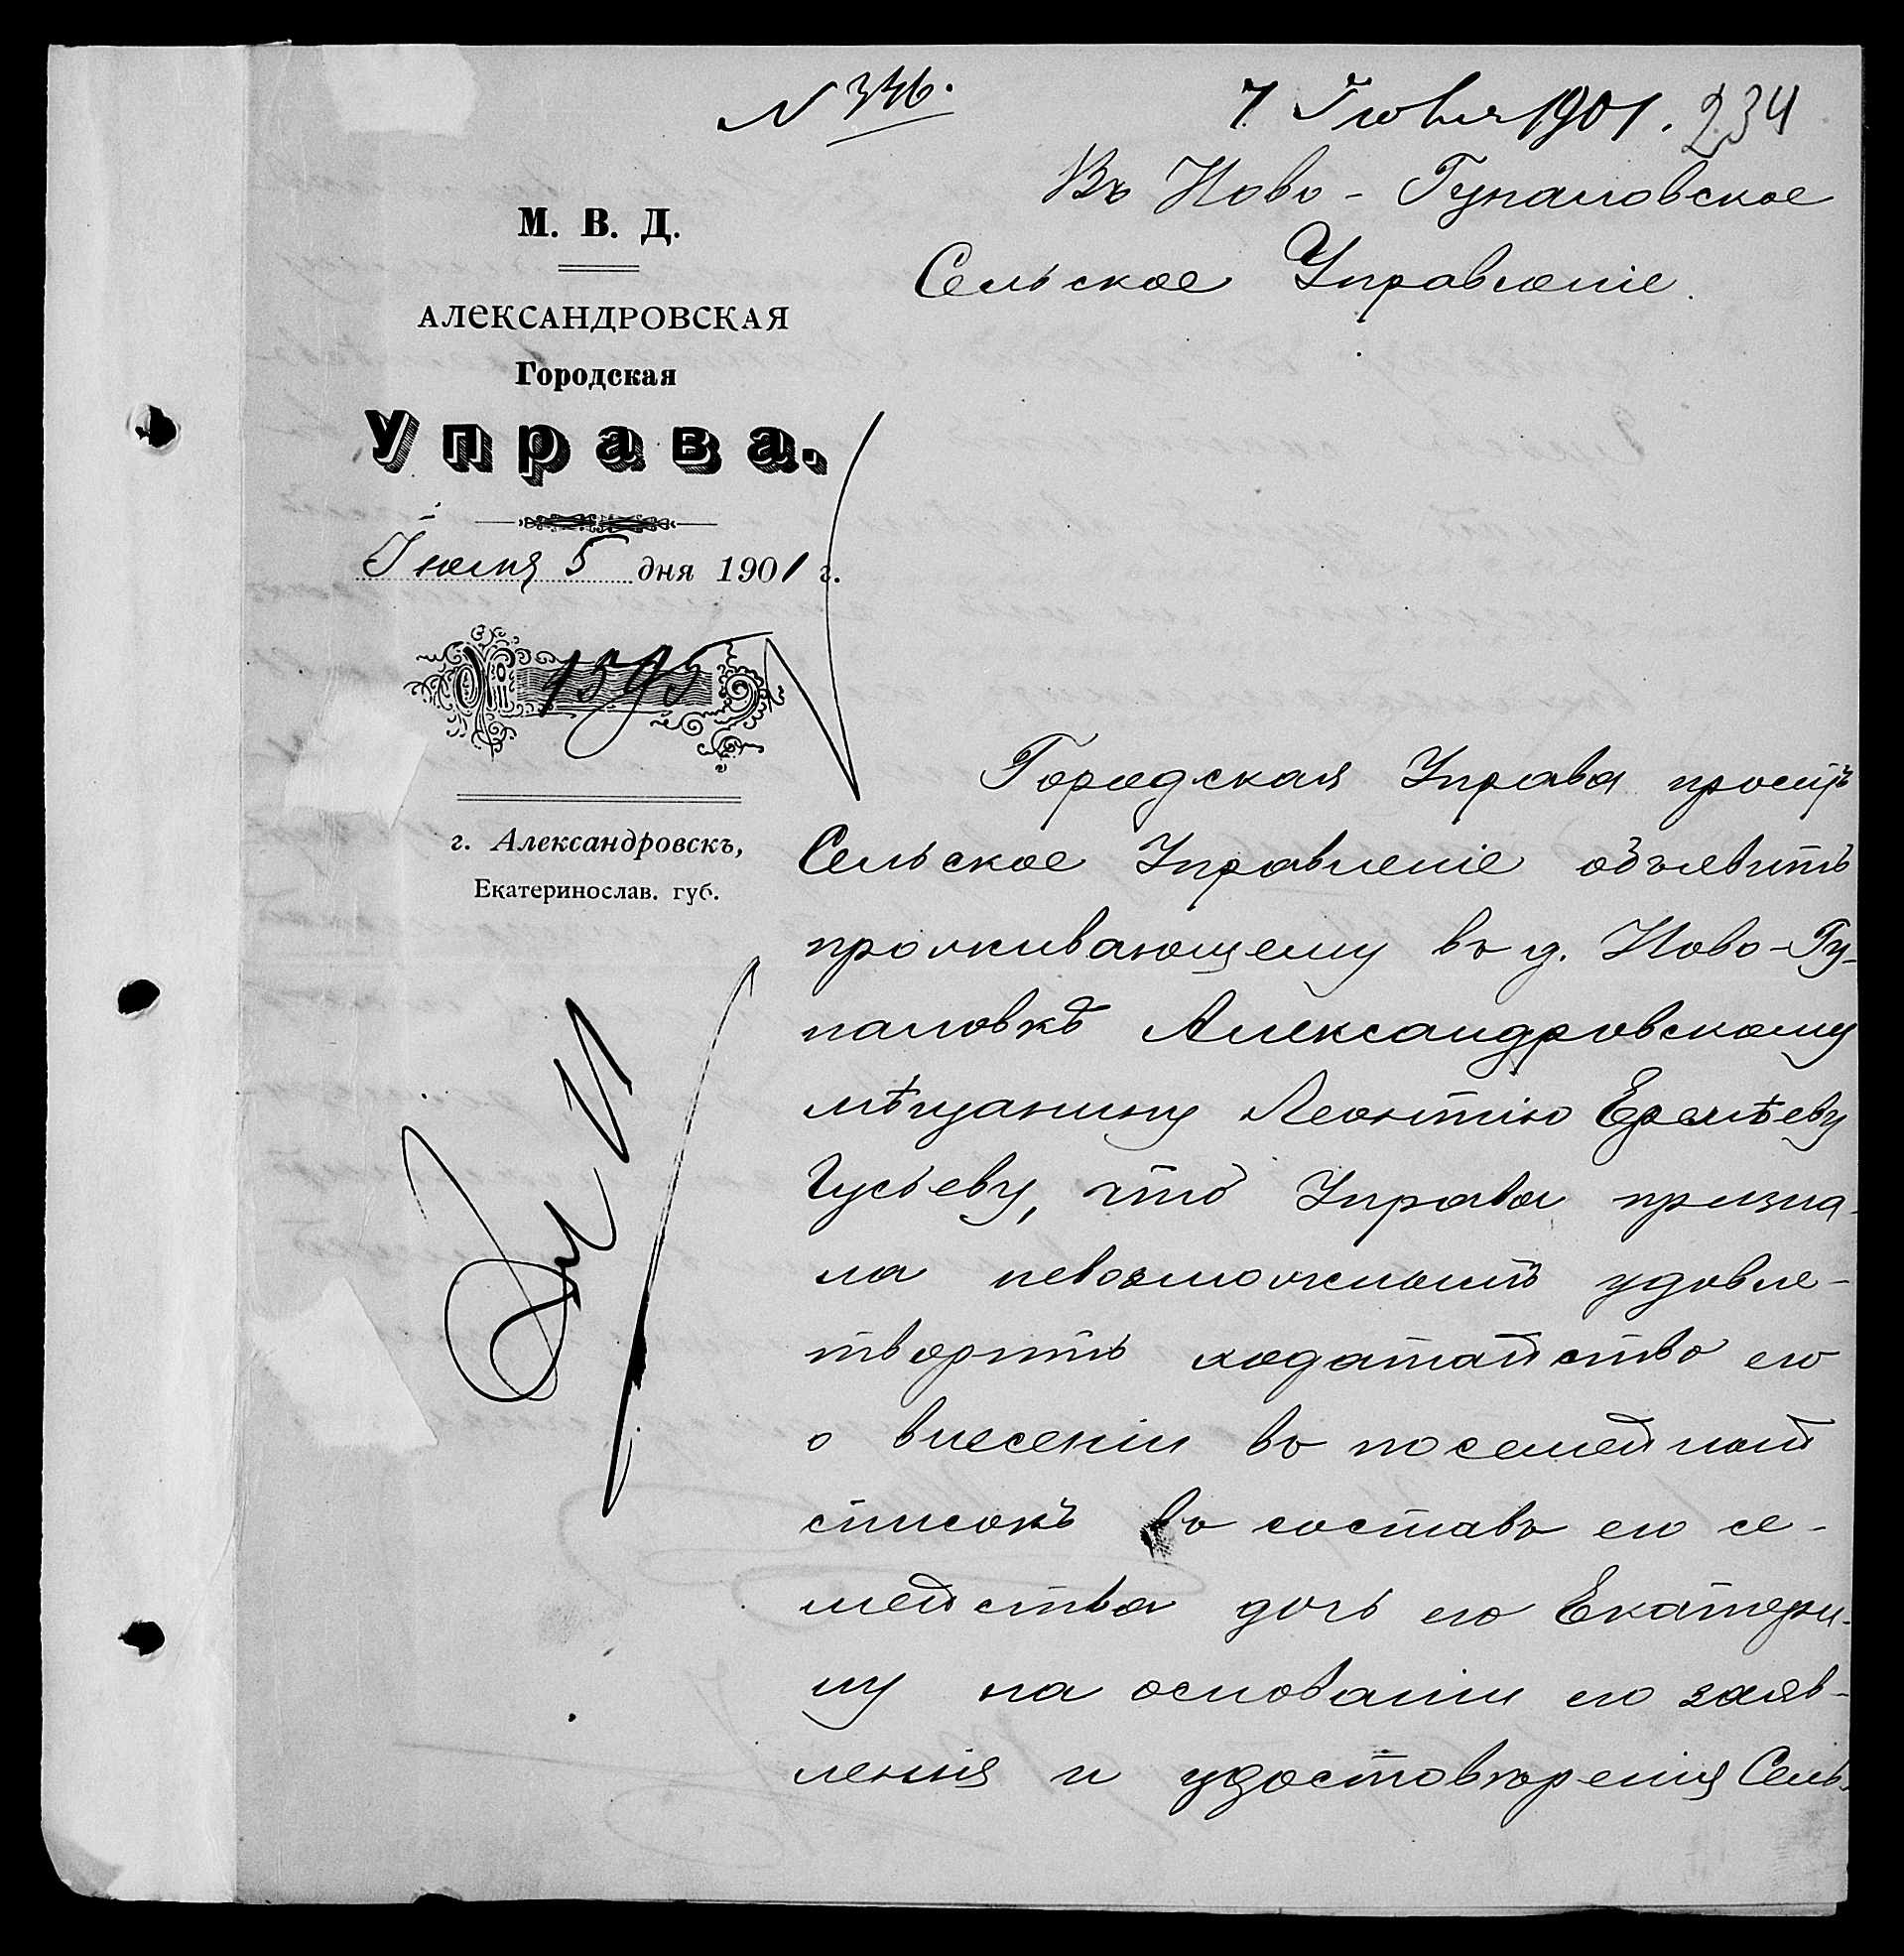 N 346.
7 Іюля 1901. 234
Въ Ново-Гупаловское
Сельское Управленіе.
М. В. Д.
АЛЕКСАНДРОВСКАЯ
Городская
Управа.
Іюля 5 дня 1901 г.
№ 1595
г. Александровскъ,
Екатеринослав. губ.
Городская Управа проситъ
Сельское Управленіе объявить
проживающему въ д. Ново-Гу-
паловкѣ Александровскому
мѣщанину Леонтію Еремѣеву
Гусьеву, что Управа призна-
ла невозможнымъ удовле-
творить ходатайство его
о внесеніи въ посемейный
списокъ въ составъ его се-
мейства дочь его Екатери-
ну на основаніи его заяв-
ленія и удостовѣренія Сель-